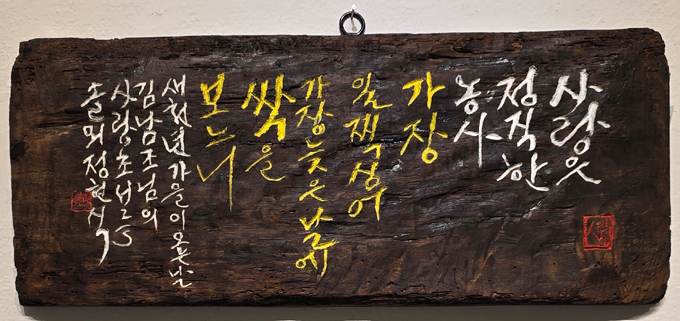 사랑은
정직한
농사
가장
일찍 심어
가장 늦은 날에
싹을
보느니
새천년 가을
김남조님의
사랑초서25
솔뫼 정현식